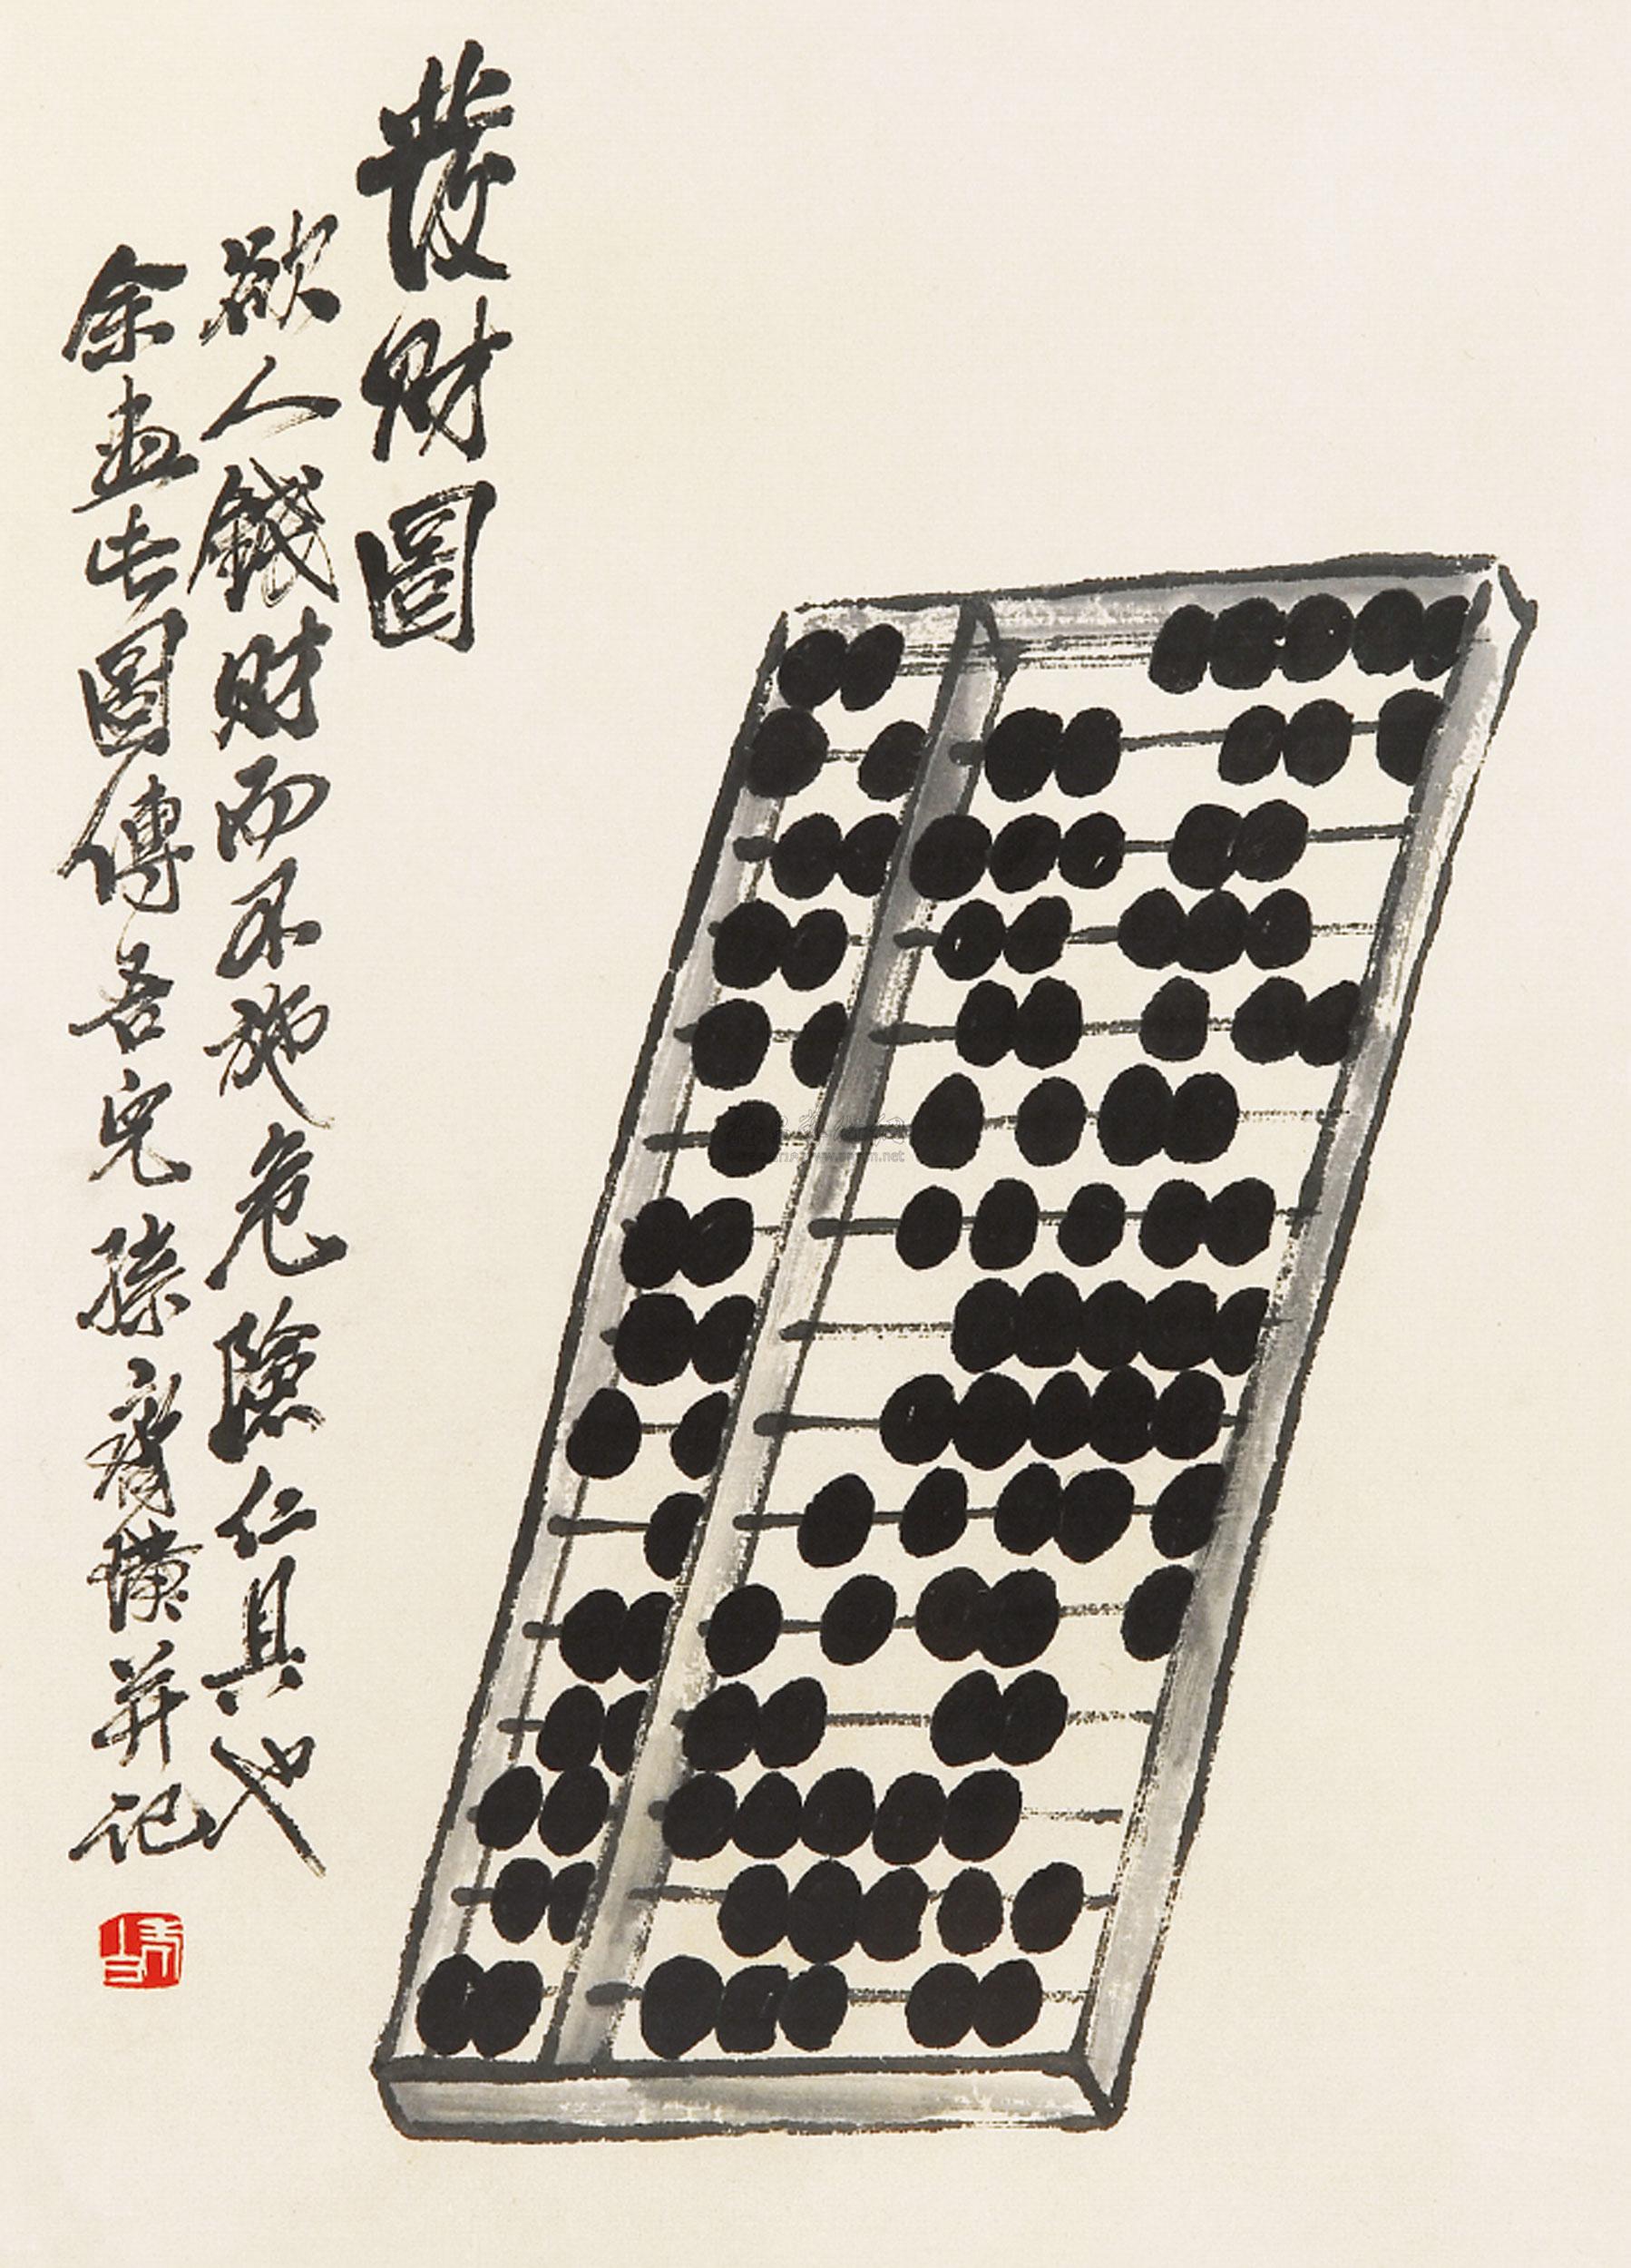 發財圖
欲人錢財而不施危險仁具也
余畫此圖傳吾兒孫齊璜并記